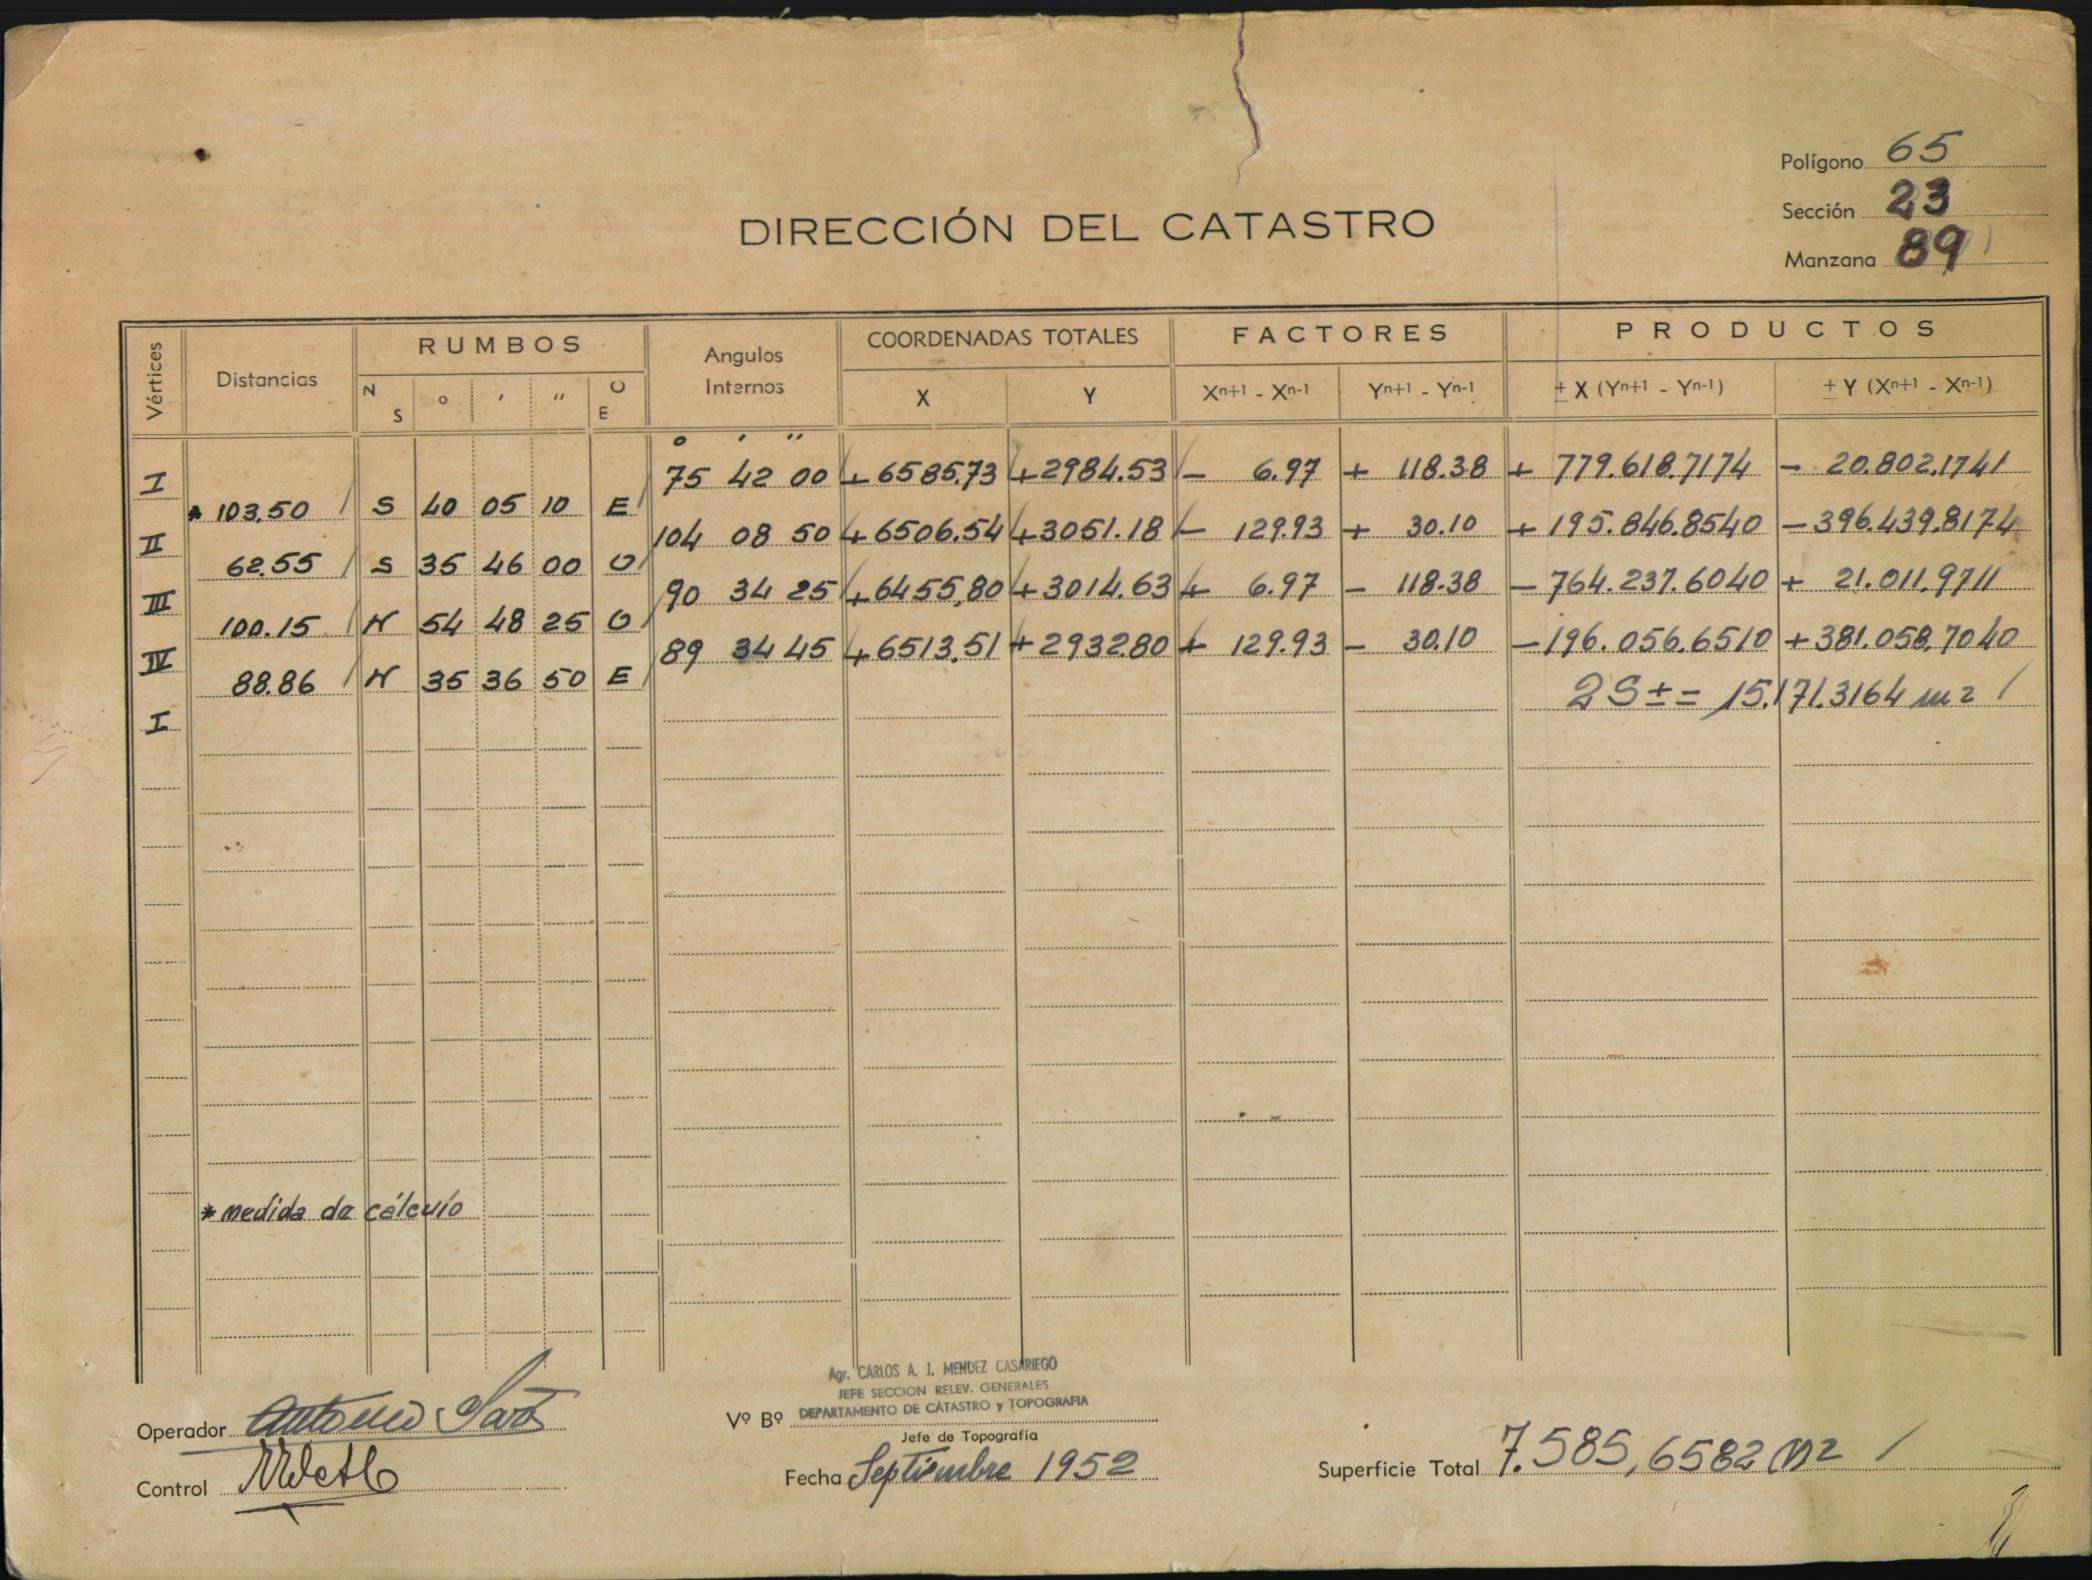 Polígono 65
Sección 23
Manzana 89
DIRECCIÓN DEL CATASTRO
Vértices Distancias RUMBOS Angulos Internos COORDENADAS TOTALES FACTORES PRODUCTOS
N S ° ' '' O E X Y Xn+1 - Xn-1 Yn+1 - Yn-1 ± X (Yn+1 - Yn-1) ± Y (Xn+1 - Xn-1)
° ' ''
I 75 42 00 + 6585.73 + 2984.53 - 6.97 + 118.38 + 779.618.7174 - 20.802.1741
* 103.50 S 40 05 10 E
II 104 08 50 + 6506.54 + 3051.18 - 129.93 + 30.10 + 195.846.8540 - 396.439.8174
62.55 S 35 46 00 O
III 90 34 25 + 6455.80 + 3014.63 + 6.97 - 118.38 - 764.237.6040 + 21.011.9711
100.15 N 54 48 25 O
IV 89 34 45 + 6513.51 + 2932.80 + 129.93 - 30.10 - 196.056.6510 + 381.058.7040
88.86 N 35 36 50 E
2S ± = 15.171.3164 m2
I
* medida de cálculo
Agr. CARLOS A. J. MENDEZ CASARIEGO
JEFE SECCION RELEV. GENERALES
DEPARTAMENTO DE CATASTRO y TOPOGRAFIA
Operador Antonio
Vº Bº
Jefe de Topografía
Control
Fecha Septiembre 1952
Superficie Total 7.585,6582 m2